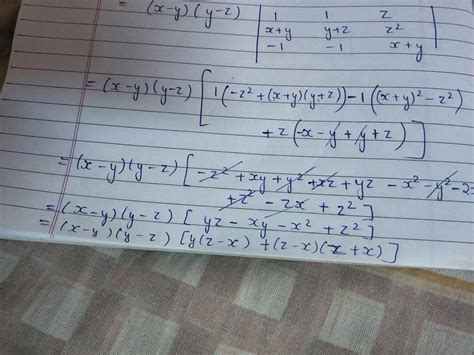 = (x-y)(y-z) | 1 1 z |
| x+y y+z z² |
| -1 -1 x+y |
= (x-y)(y-z) [ 1(-z² + (x+y)(y+z)) - 1((x+y)² - z²)
+ z(-x - y + y + z) ]
= (x-y)(y-z) [ -z² + xy + y² + xz + yz - x² - y² - 2
+ z² - zx + z² ]
= (x-y)(y-z) [ yz - xy - x² + z² ]
= (x-y)(y-z) [y(z-x) + (z-x)(z+x)]